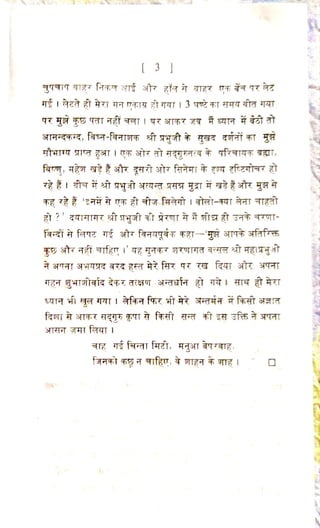 [ 3 ]
चुपचाप बाहर निकल आई और हॉल से बाहर एक बेंच पर लेट
गई । लेटते ही मेरा मन एकाग्र हो गया । 3 घण्टे का समय बीत गया
पर मुझे कुछ पता नहीं चला । घर आकर जब मैं ध्यान में बैठी तो
आनन्दकन्द, विघ्न-विनाशक श्री प्रभुजी के सुखद दर्शनों का मुझे
सौभाग्य प्राप्त हुआ । एक ओर तो सद्गुरुतत्व के परिचायक ब्रह्मा,
विष्णु, महेश खड़े हैं और दूसरी ओर सिनेमा के दृश्य दृष्टिगोचर हो
रहे हैं । बीच में श्री प्रभुजी अत्यन्त प्रसन्न मुद्रा में खड़े हैं और मुझ से
कह रहे हैं 'इनमें से एक ही चीज मिलेगी । बोलो-क्या लेना चाहती
हो ?' दयासागर श्री प्रभुजी की प्रेरणा से मैं शीघ्र ही उनके चरणा-
विन्दों से लिपट गई और विनयपूर्वक कहा—'मुझे आपके अतिरिक्त
कुछ और नहीं चाहिए ।' यह सुनकर शरणागत वत्सल श्री महाप्रभुजी
ने अपना अभयप्रद वरद हस्त मेरे सिर पर रख दिया और अपना
गहन शुभाशीर्वाद देकर तत्क्षण अन्तर्धान हो गये । साथ ही मेरा
ध्यान भी खुल गया । लेकिन फिर भी मेरे अन्तर्मन में किसी अज्ञात
दिशा से आकर सद्गुरु कृपा से किसी सन्त की इस उक्ति ने अपना
आसन जमा लिया ।
चाह गई चिन्ता मिटी, मनुआ बेपरवाह,
जिनको कछु न चाहिए, वे शाहन के शाह । □